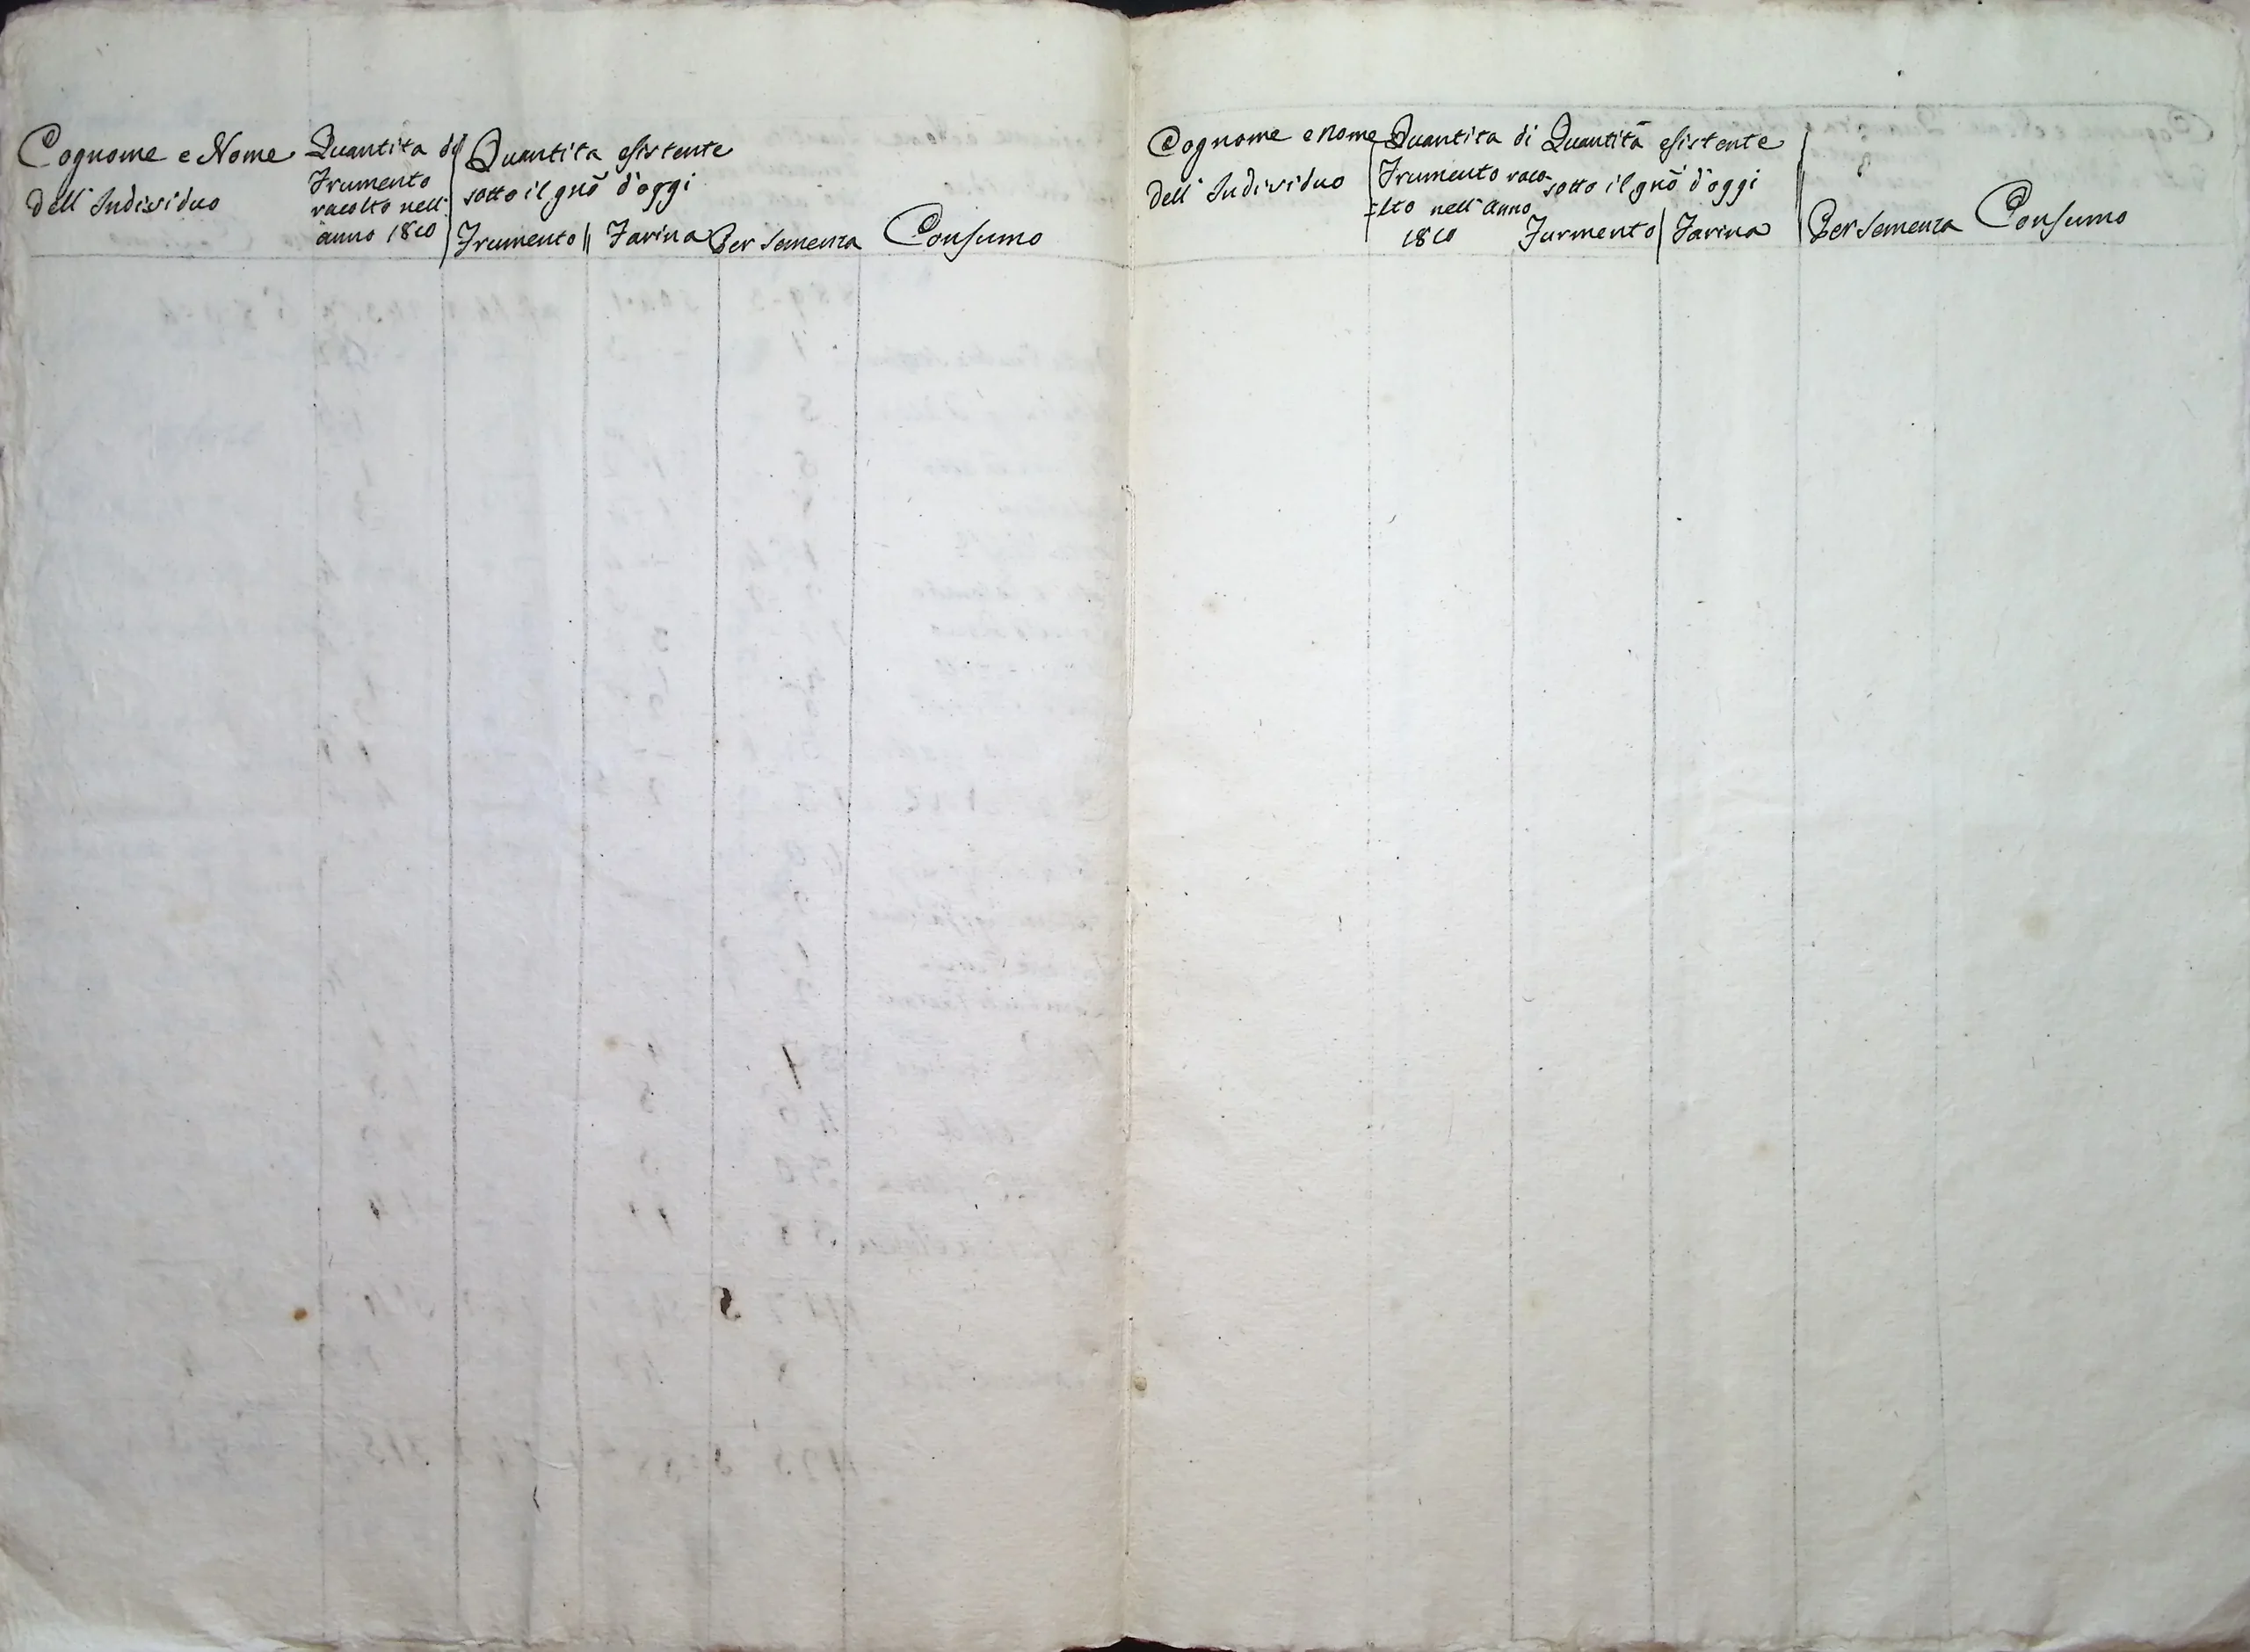 Cognome e Nome
dell' Individuo
Quantita di
Frumento
racolto nell'
anno 1810
Quantita esistente
sotto il gnõ d'oggi
Frumento
Farina
Per semenza
Consumo
Cognome e Nome
dell' Individuo
Quantita di
Frumento raco-
=lto nell' anno
1810
Quantità esistente
sotto il gnõ d'oggi
Furmento
Farina
Per semenza
Consumo